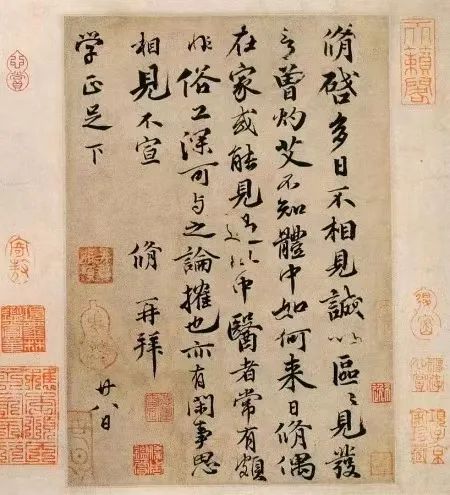 脩啓多日不相見誠以區〻見發
言曾灼艾不知體中如何来日脩偶
在家或能見過此中醫者常有頗
非俗工深可与之論搉也亦有閑事思
相見不宣
脩再拜
廿八日
学正足下
天籟閣